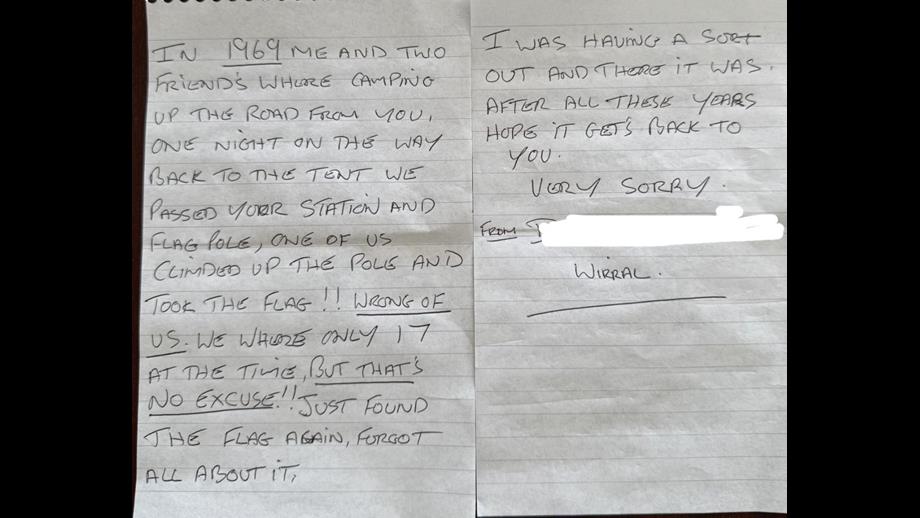 IN 1969 ME AND TWO
FRIEND'S WHERE CAMPING
UP THE ROAD FROM YOU,
ONE NIGHT ON THE WAY
BACK TO THE TENT WE
PASSED YOUR STATION AND
FLAG POLE, ONE OF US
CLIMDED UP THE POLE AND
TOOK THE FLAG!! WRONG OF
US. WE WHERE ONLY 17
AT THE TIME, BUT THAT'S
NO EXCUSE!! JUST FOUND
THE FLAG AGAIN, FORGOT
ALL ABOUT IT,
I WAS HAVING A SORT
OUT AND THERE IT WAS.
AFTER ALL THESE YEARS
HOPE IT GET'S BACK TO
YOU.
VERY SORRY.
FROM
WIRRAL.